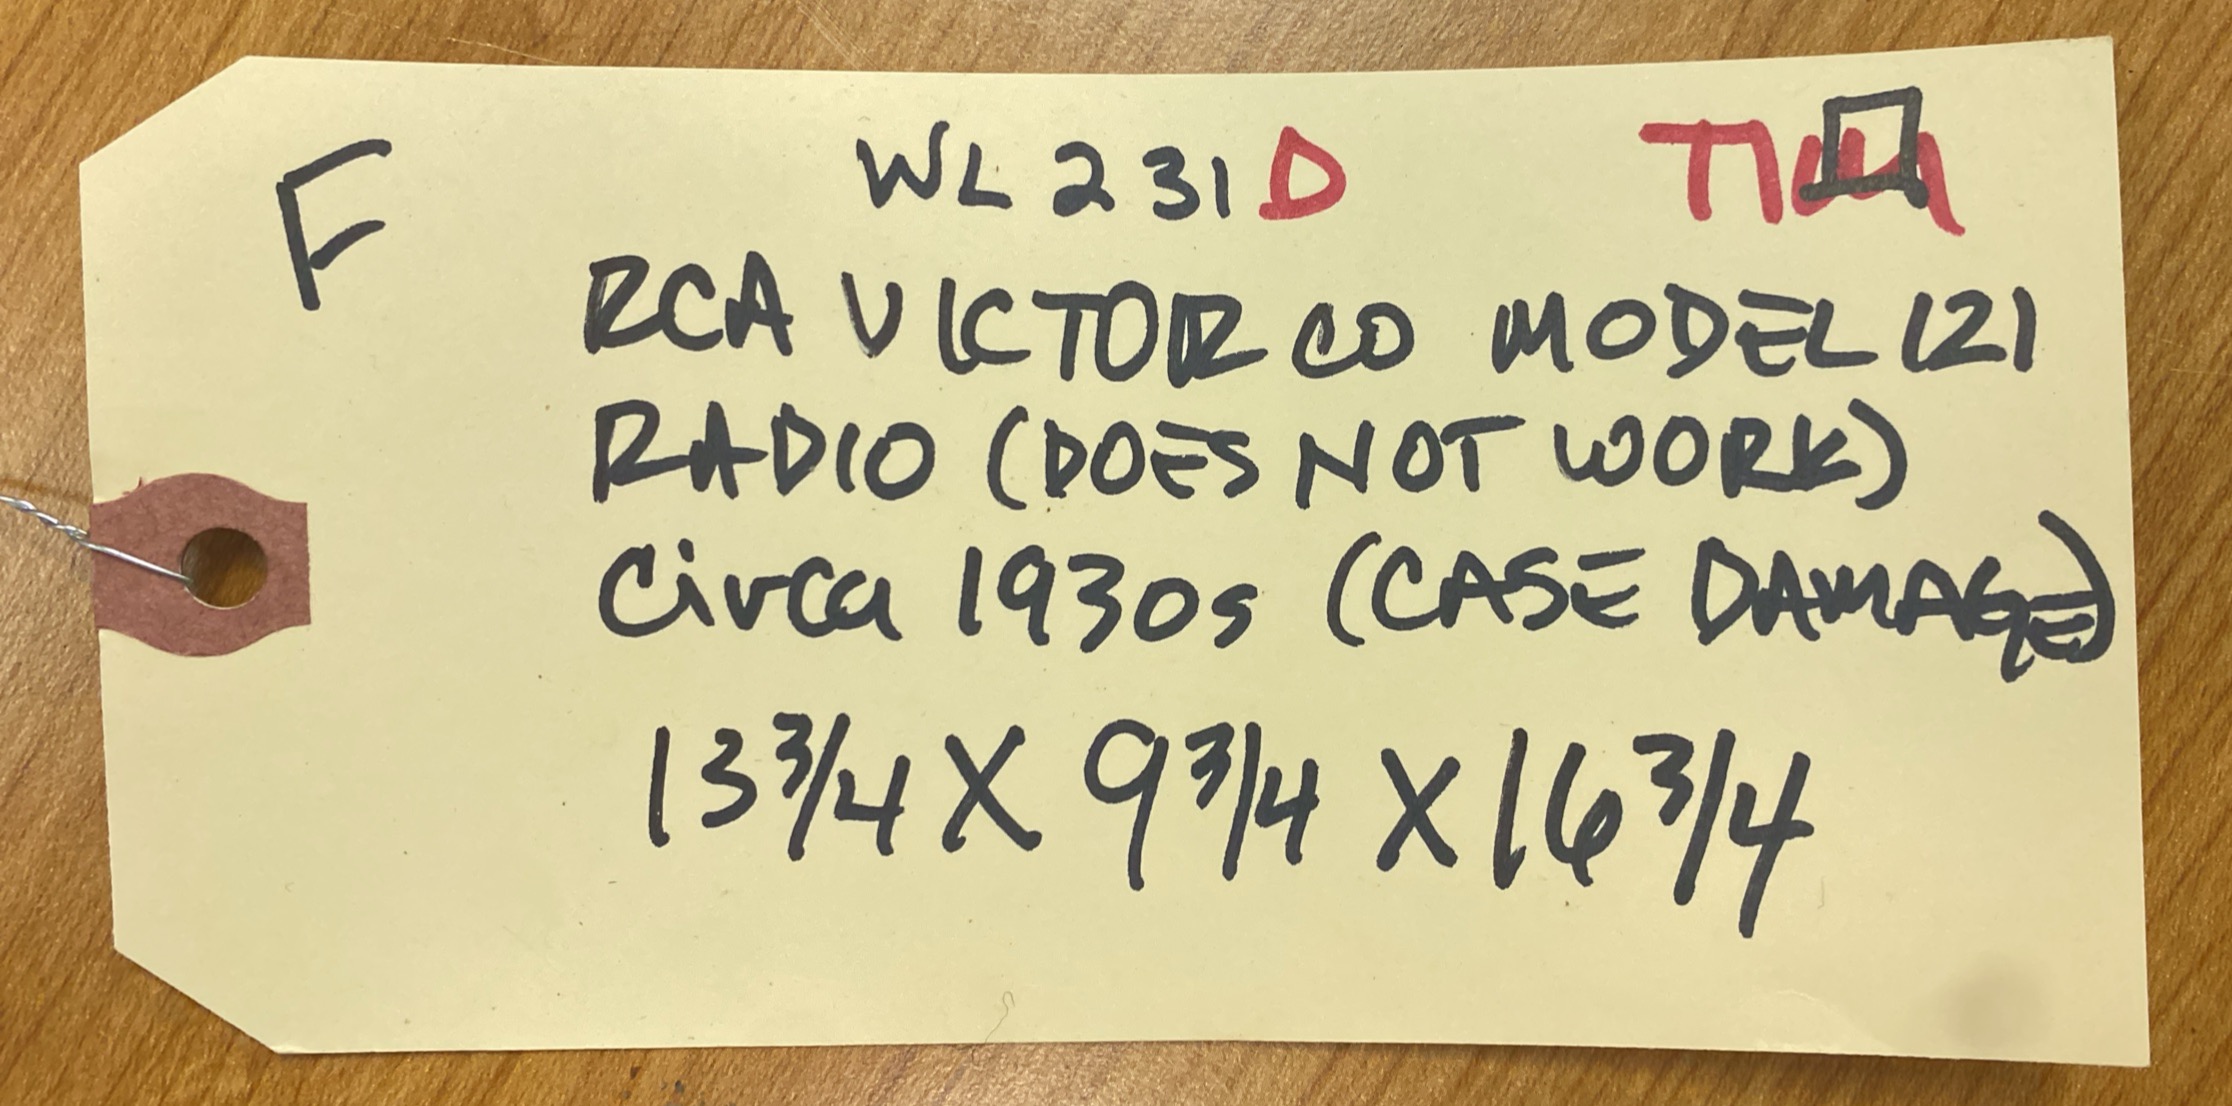 F
WL231D
RCA VICTOR CO MODEL 121
RADIO (DOES NOT WORK)
Circa 1930s (CASE DAMAGE)
13 3/4 X 9 3/4 X 16 3/4